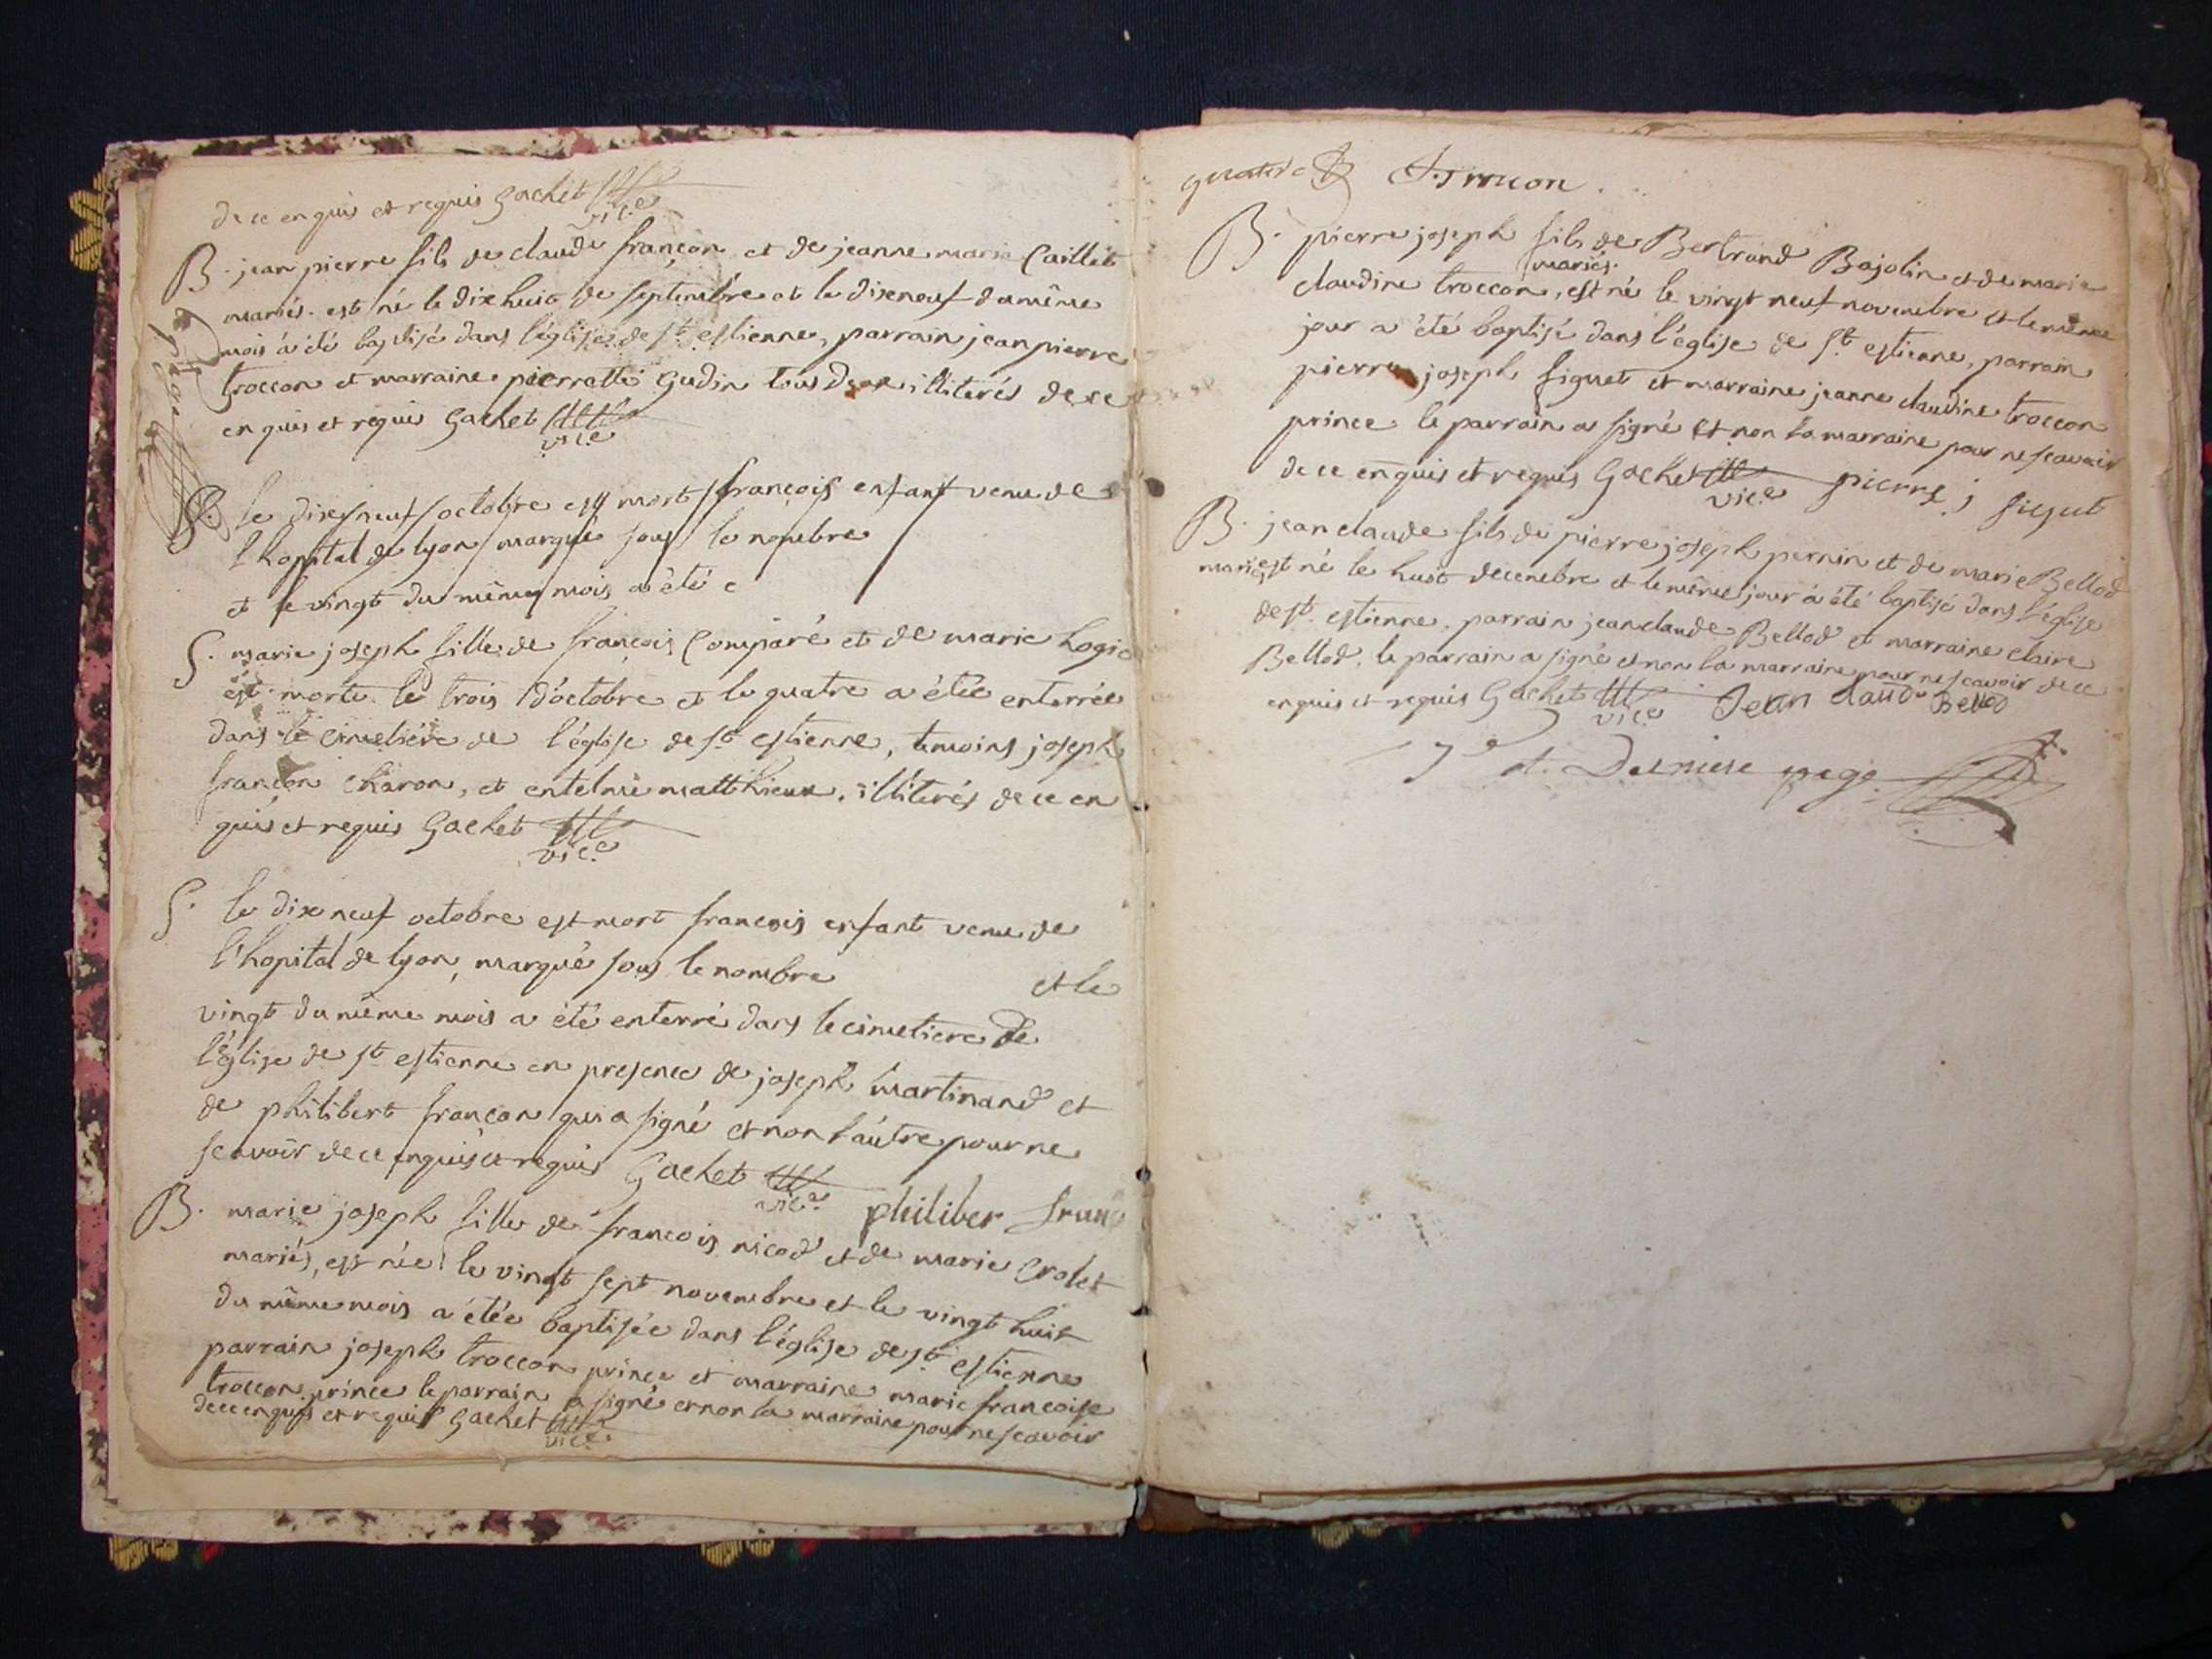 de ce enquis et requis Gachet
vic.e
B. jean pierre fils de claude françon et de jeanne marie Caillet
mariés. est né le dix huit de septembre et le dixneuf du même
mois a été baptisé dans l'église de st estienne, parrain jean pierre
troccon et marraine pierrette gudin tous deux illiterés de ce
enquis et requis Gachet
vic.e
S. le dix neuf octobre est mort françois enfant venu de
l'hopital de lyon marqué sous le nombre
et le vingt du même mois a été e
S. marie joseph fille de françois Comparé et de marie hogie
est morte le trois d'octobre et le quatre a étée enterrée
dans le cimetière de l'église de st estienne, temoins joseph
françon charon, et entelme matthieux, illiterés de ce en
quis et requis Gachet
vic.e
S. le dix neuf octobre est mort françois enfant venu de
l'hopital de lyon, marqué sous le nombre et le
vingt du même mois a été enterré dans le cimetiere de
l'église de st estienne en presence de joseph martinand et
de philibert françon qui a signé et non l'autre pour ne
scavoir de ce enquis et requis Gachet
vic.e philiber fran
B. marie joseph fille de francois nicod et de marie Crolet
mariés, est née le vingt sept novembre et le vingt huit
du même mois a étée baptisée dans l'église de st estienne
parrain joseph troccon prince et marraine marie françoise
troccon prince le parrain a signé et non la marraine pour ne scavoir
de ce enquis et requis Gachet
vic.e
B. pierre joseph fils de Bertrand Bajolin et de marie
mariés.
claudine troccon, est né le vingt neuf novembre et le même
jour a été baptisé dans l'église de st estienne, parrain
pierre joseph siguet et marraine jeanne claudine troccon
prince le parrain a signé et non la marraine pour ne scavoir
de ce enquis et requis Gachet pierre j siguet
vic.e
B. jean claude fils de pierre joseph pernin et de marie Bellod
mariés est né le huit decembre et le même jour a été baptisé dans l'église
de st. estienne, parrain jean claude Bellod et marraine claire
Bellod, le parrain a signé et non la marraine pour ne scavoir de ce
enquis et requis Gachet Jean claude Bellod
vic.e
7e et Derniere page